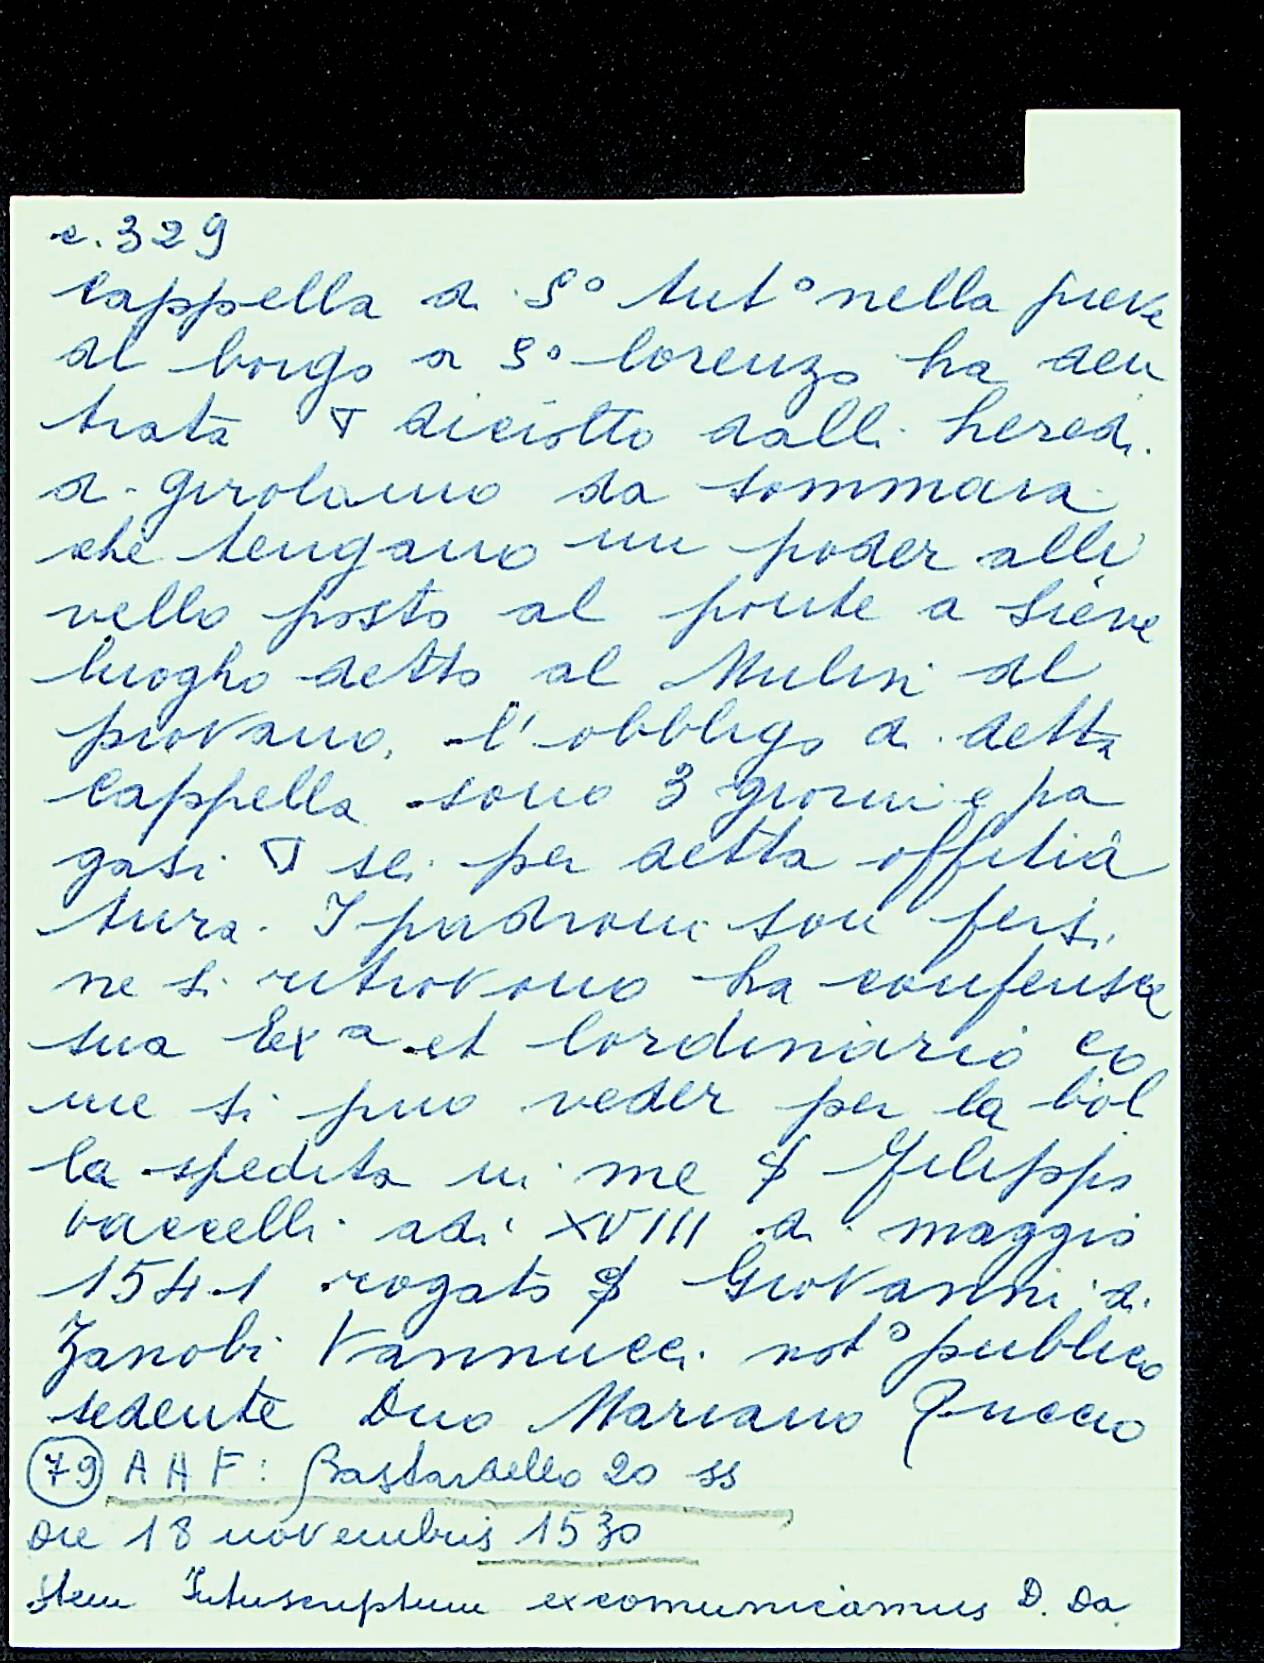 c. 329
Cappella di S° Ant° nella pieve
al borgo a S° lorenzo ha den
trata ∇ diciotto dalli heredi
di girolamo da sommaia
che tengano un poder alli
vello posto al ponte a Sieve
luogho detto al Mulin del
piovano, l'obbligo di detta
Cappella sono 3 giorni e pa
gasi ∇ sei per detta offitia
tura. I padroni son persi,
ne si ritrovono ha conferisce
sua Exᵃ et lordinario co
me si puo veder per la bol
la spedita in me Filippo
vaccelli adi XVIII di maggio
1541 rogato Giovanni di
Zanobi Vannucci not° publico
sedente Dno Mariano Puccio
79 A H F: Bastardello 20 ss
Die 18 novembris 1530
Item Intuscriptum excomunicamus D. Da